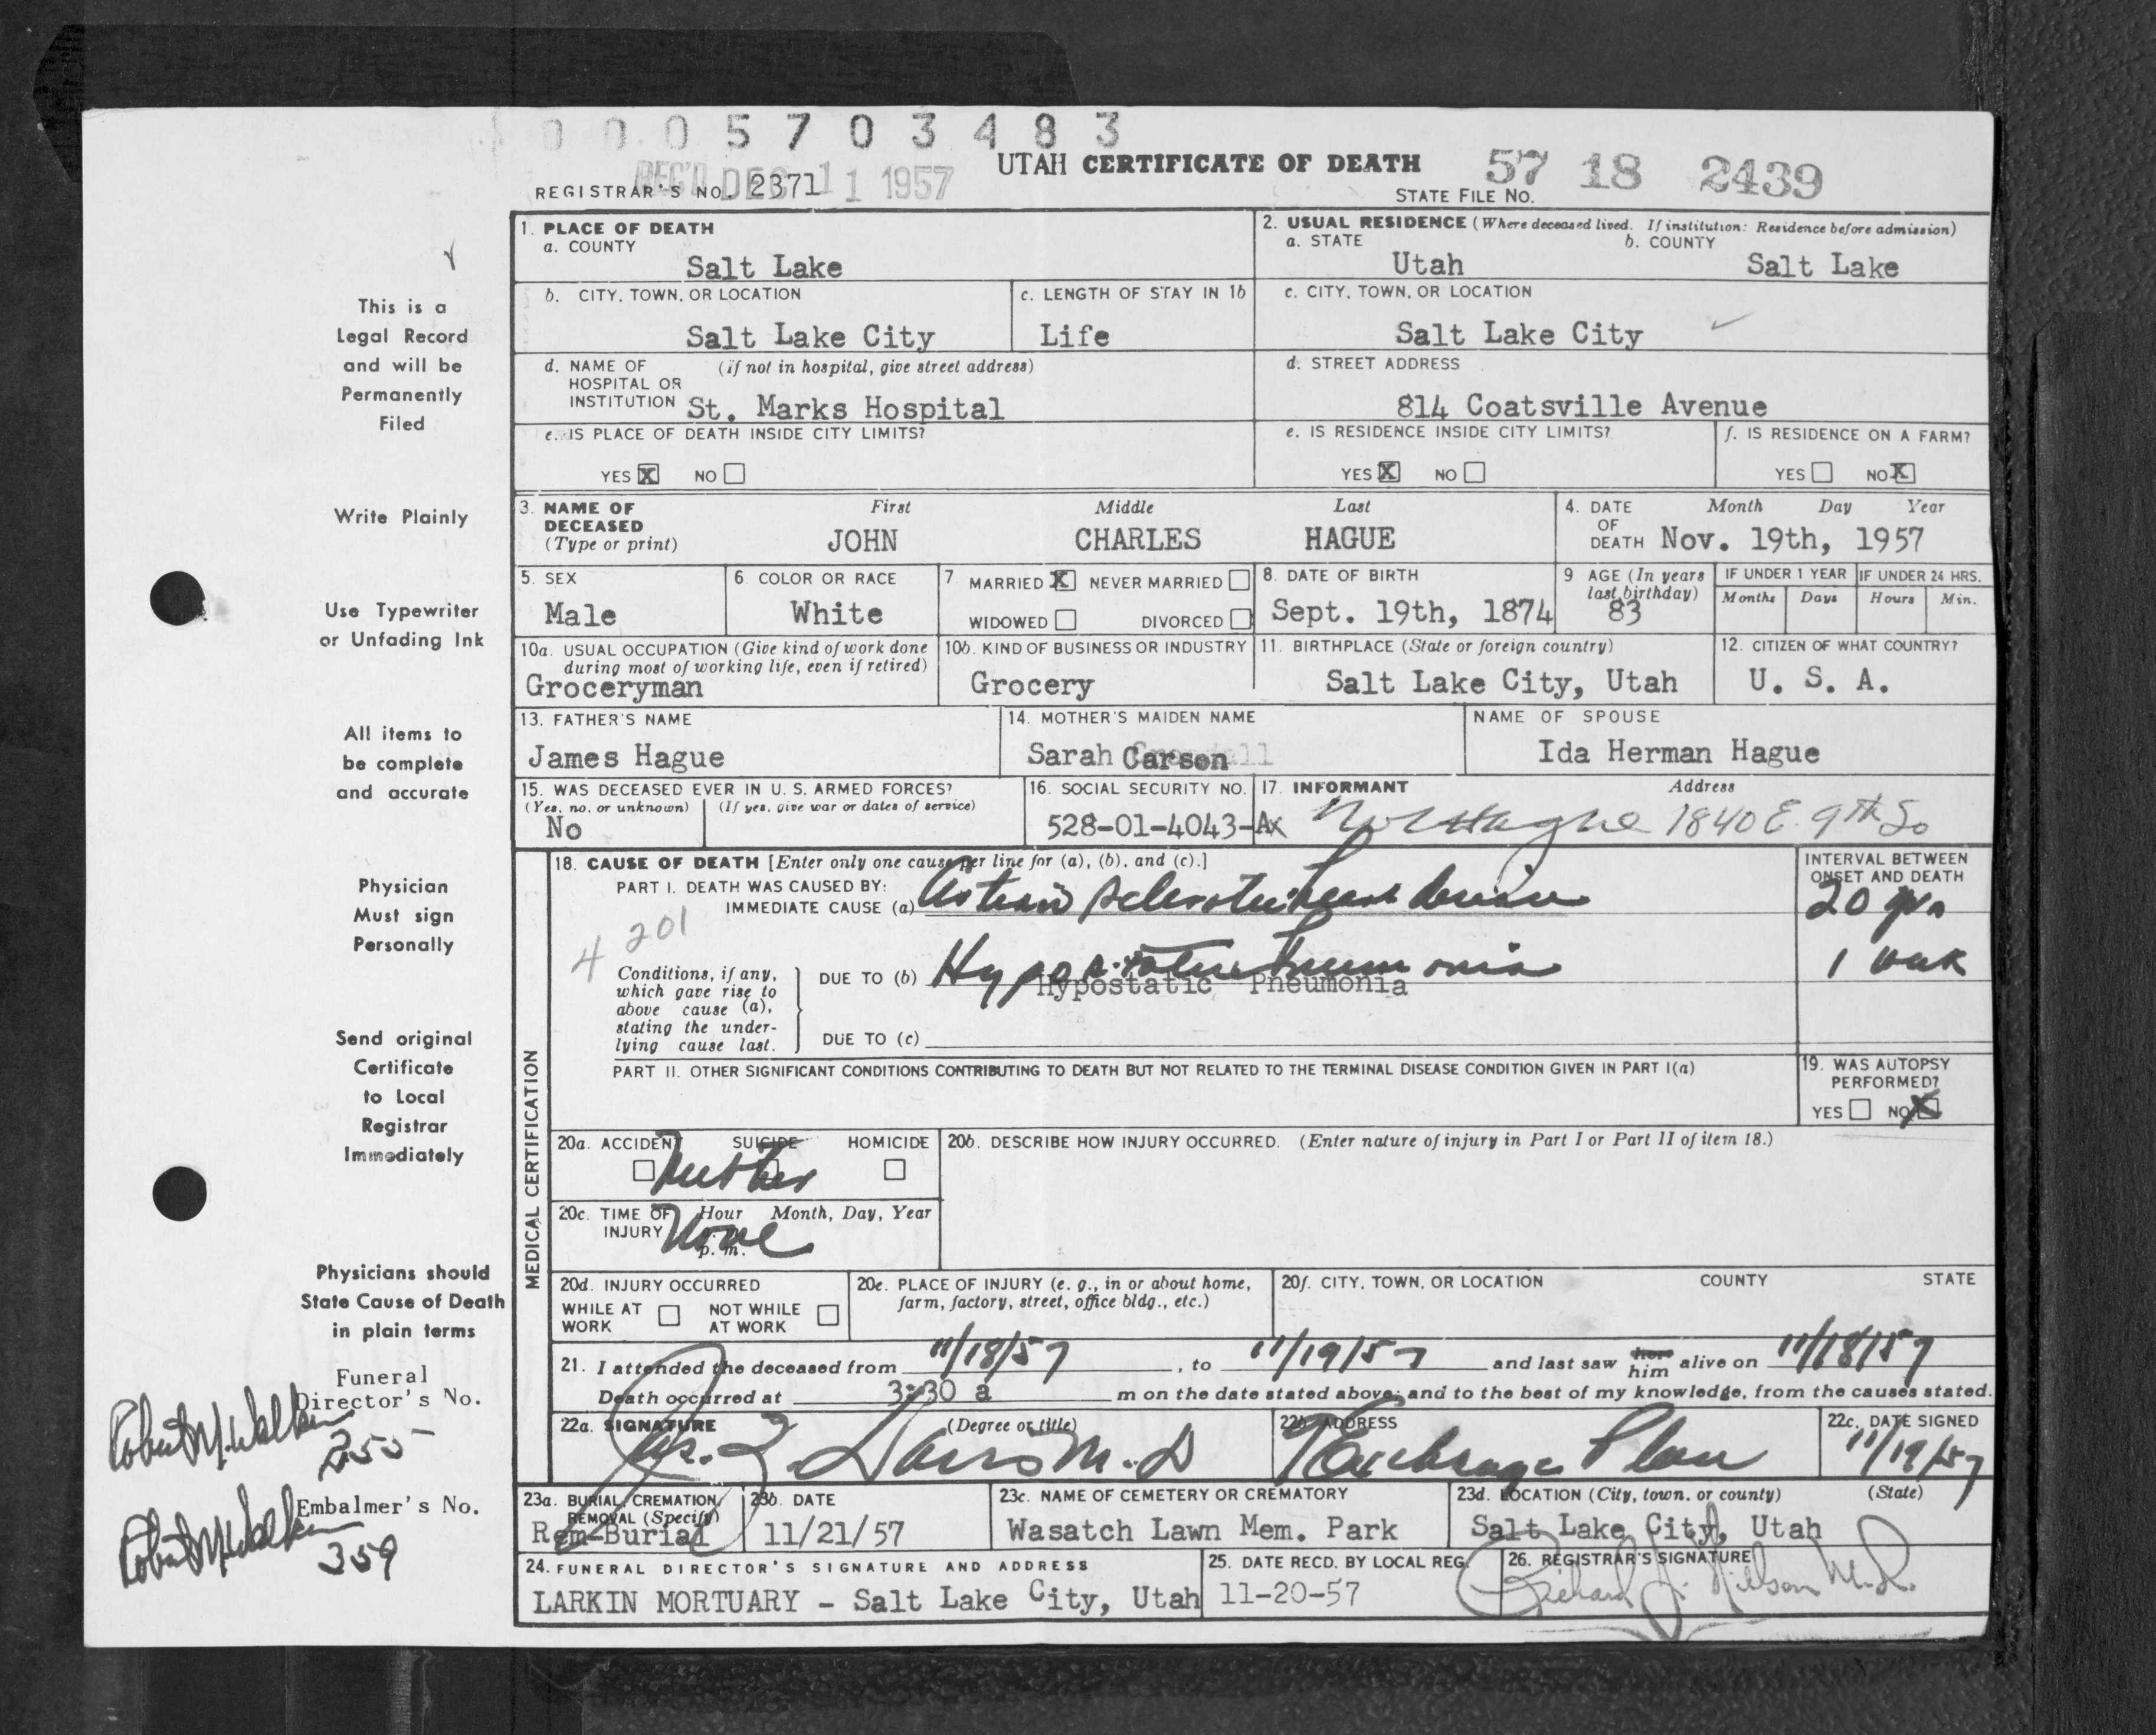 0005703483
UTAH CERTIFICATE OF DEATH
57 18 2439
REGISTRAR'S NO. 2371
REC'D DEC 11 1957
STATE FILE NO.
1. PLACE OF DEATH
a. COUNTY
Salt Lake
2. USUAL RESIDENCE (Where deceased lived. If institution: Residence before admission)
a. STATE b. COUNTY
Utah Salt Lake
b. CITY, TOWN, OR LOCATION
Salt Lake City
c. LENGTH OF STAY IN 1b
Life
c. CITY, TOWN, OR LOCATION
Salt Lake City
d. NAME OF (if not in hospital, give street address)
HOSPITAL OR
INSTITUTION St. Marks Hospital
d. STREET ADDRESS
814 Coatsville Avenue
e. IS PLACE OF DEATH INSIDE CITY LIMITS?
YES X NO
e. IS RESIDENCE INSIDE CITY LIMITS?
YES X NO
f. IS RESIDENCE ON A FARM?
YES NO X
3. NAME OF DECEASED (Type or print)
First Middle Last
JOHN CHARLES HAGUE
4. DATE OF DEATH
Month Day Year
Nov. 19th, 1957
5. SEX
Male
6 COLOR OR RACE
White
7 MARRIED X NEVER MARRIED
WIDOWED DIVORCED
8. DATE OF BIRTH
Sept. 19th, 1874
9 AGE (In years last birthday)
83
IF UNDER 1 YEAR IF UNDER 24 HRS.
Months Days Hours Min.
10a. USUAL OCCUPATION (Give kind of work done
during most of working life, even if retired)
Groceryman
10b. KIND OF BUSINESS OR INDUSTRY
Grocery
11. BIRTHPLACE (State or foreign country)
Salt Lake City, Utah
12. CITIZEN OF WHAT COUNTRY?
U. S. A.
13. FATHER'S NAME
James Hague
14. MOTHER'S MAIDEN NAME
Sarah Carson
NAME OF SPOUSE
Ida Herman Hague
15. WAS DECEASED EVER IN U. S. ARMED FORCES?
(Yes, no, or unknown) (If yes, give war or dates of service)
No
16. SOCIAL SECURITY NO.
528-01-4043-A
17. INFORMANT Address
x Hague 1840 E. 9th So
MEDICAL CERTIFICATION
18. CAUSE OF DEATH [Enter only one cause per line for (a), (b), and (c).]
PART I. DEATH WAS CAUSED BY:
IMMEDIATE CAUSE (a) Arterio sclerotic heart disease
INTERVAL BETWEEN
ONSET AND DEATH
20 yrs
4 201
Conditions, if any,
which gave rise to
above cause (a),
stating the under-
lying cause last.
DUE TO (b) Hypostatic Pneumonia
Hypostatic Pneumonia
1 week
DUE TO (c)
PART II. OTHER SIGNIFICANT CONDITIONS CONTRIBUTING TO DEATH BUT NOT RELATED TO THE TERMINAL DISEASE CONDITION GIVEN IN PART I(a)
19. WAS AUTOPSY
PERFORMED?
YES NO X
20a. ACCIDENT SUICIDE HOMICIDE
Neither
20b. DESCRIBE HOW INJURY OCCURRED. (Enter nature of injury in Part I or Part II of item 18.)
20c. TIME OF INJURY
Hour Month, Day, Year
p. m.
None
20d. INJURY OCCURRED
WHILE AT WORK NOT WHILE AT WORK
20e. PLACE OF INJURY (e. g., in or about home,
farm, factory, street, office bldg., etc.)
20f. CITY, TOWN, OR LOCATION COUNTY STATE
21. I attended the deceased from 11/18/57, to 11/19/57 and last saw her him alive on 11/18/57
Death occurred at 3:30 a m on the date stated above; and to the best of my knowledge, from the causes stated.
22a. SIGNATURE (Degree or title)
M.D
22b. ADDRESS
Exchange Place
22c. DATE SIGNED
11/19/57
23a. BURIAL, CREMATION,
REMOVAL (Specify)
Rem-Burial
23b. DATE
11/21/57
23c. NAME OF CEMETERY OR CREMATORY
Wasatch Lawn Mem. Park
23d. LOCATION (City, town, or county) (State)
Salt Lake City, Utah
24. FUNERAL DIRECTOR'S SIGNATURE AND ADDRESS
LARKIN MORTUARY - Salt Lake City, Utah
25. DATE RECD. BY LOCAL REG.
11-20-57
26. REGISTRAR'S SIGNATURE
Richard J. Nilson M.D.
This is a
Legal Record
and will be
Permanently
Filed
Write Plainly
Use Typewriter
or Unfading Ink
All items to
be complete
and accurate
Physician
Must sign
Personally
Send original
Certificate
to Local
Registrar
Immediately
Physicians should
State Cause of Death
in plain terms
Funeral
Director's No.
Robert M. Walker
255
Embalmer's No.
Robert M. Walker
359